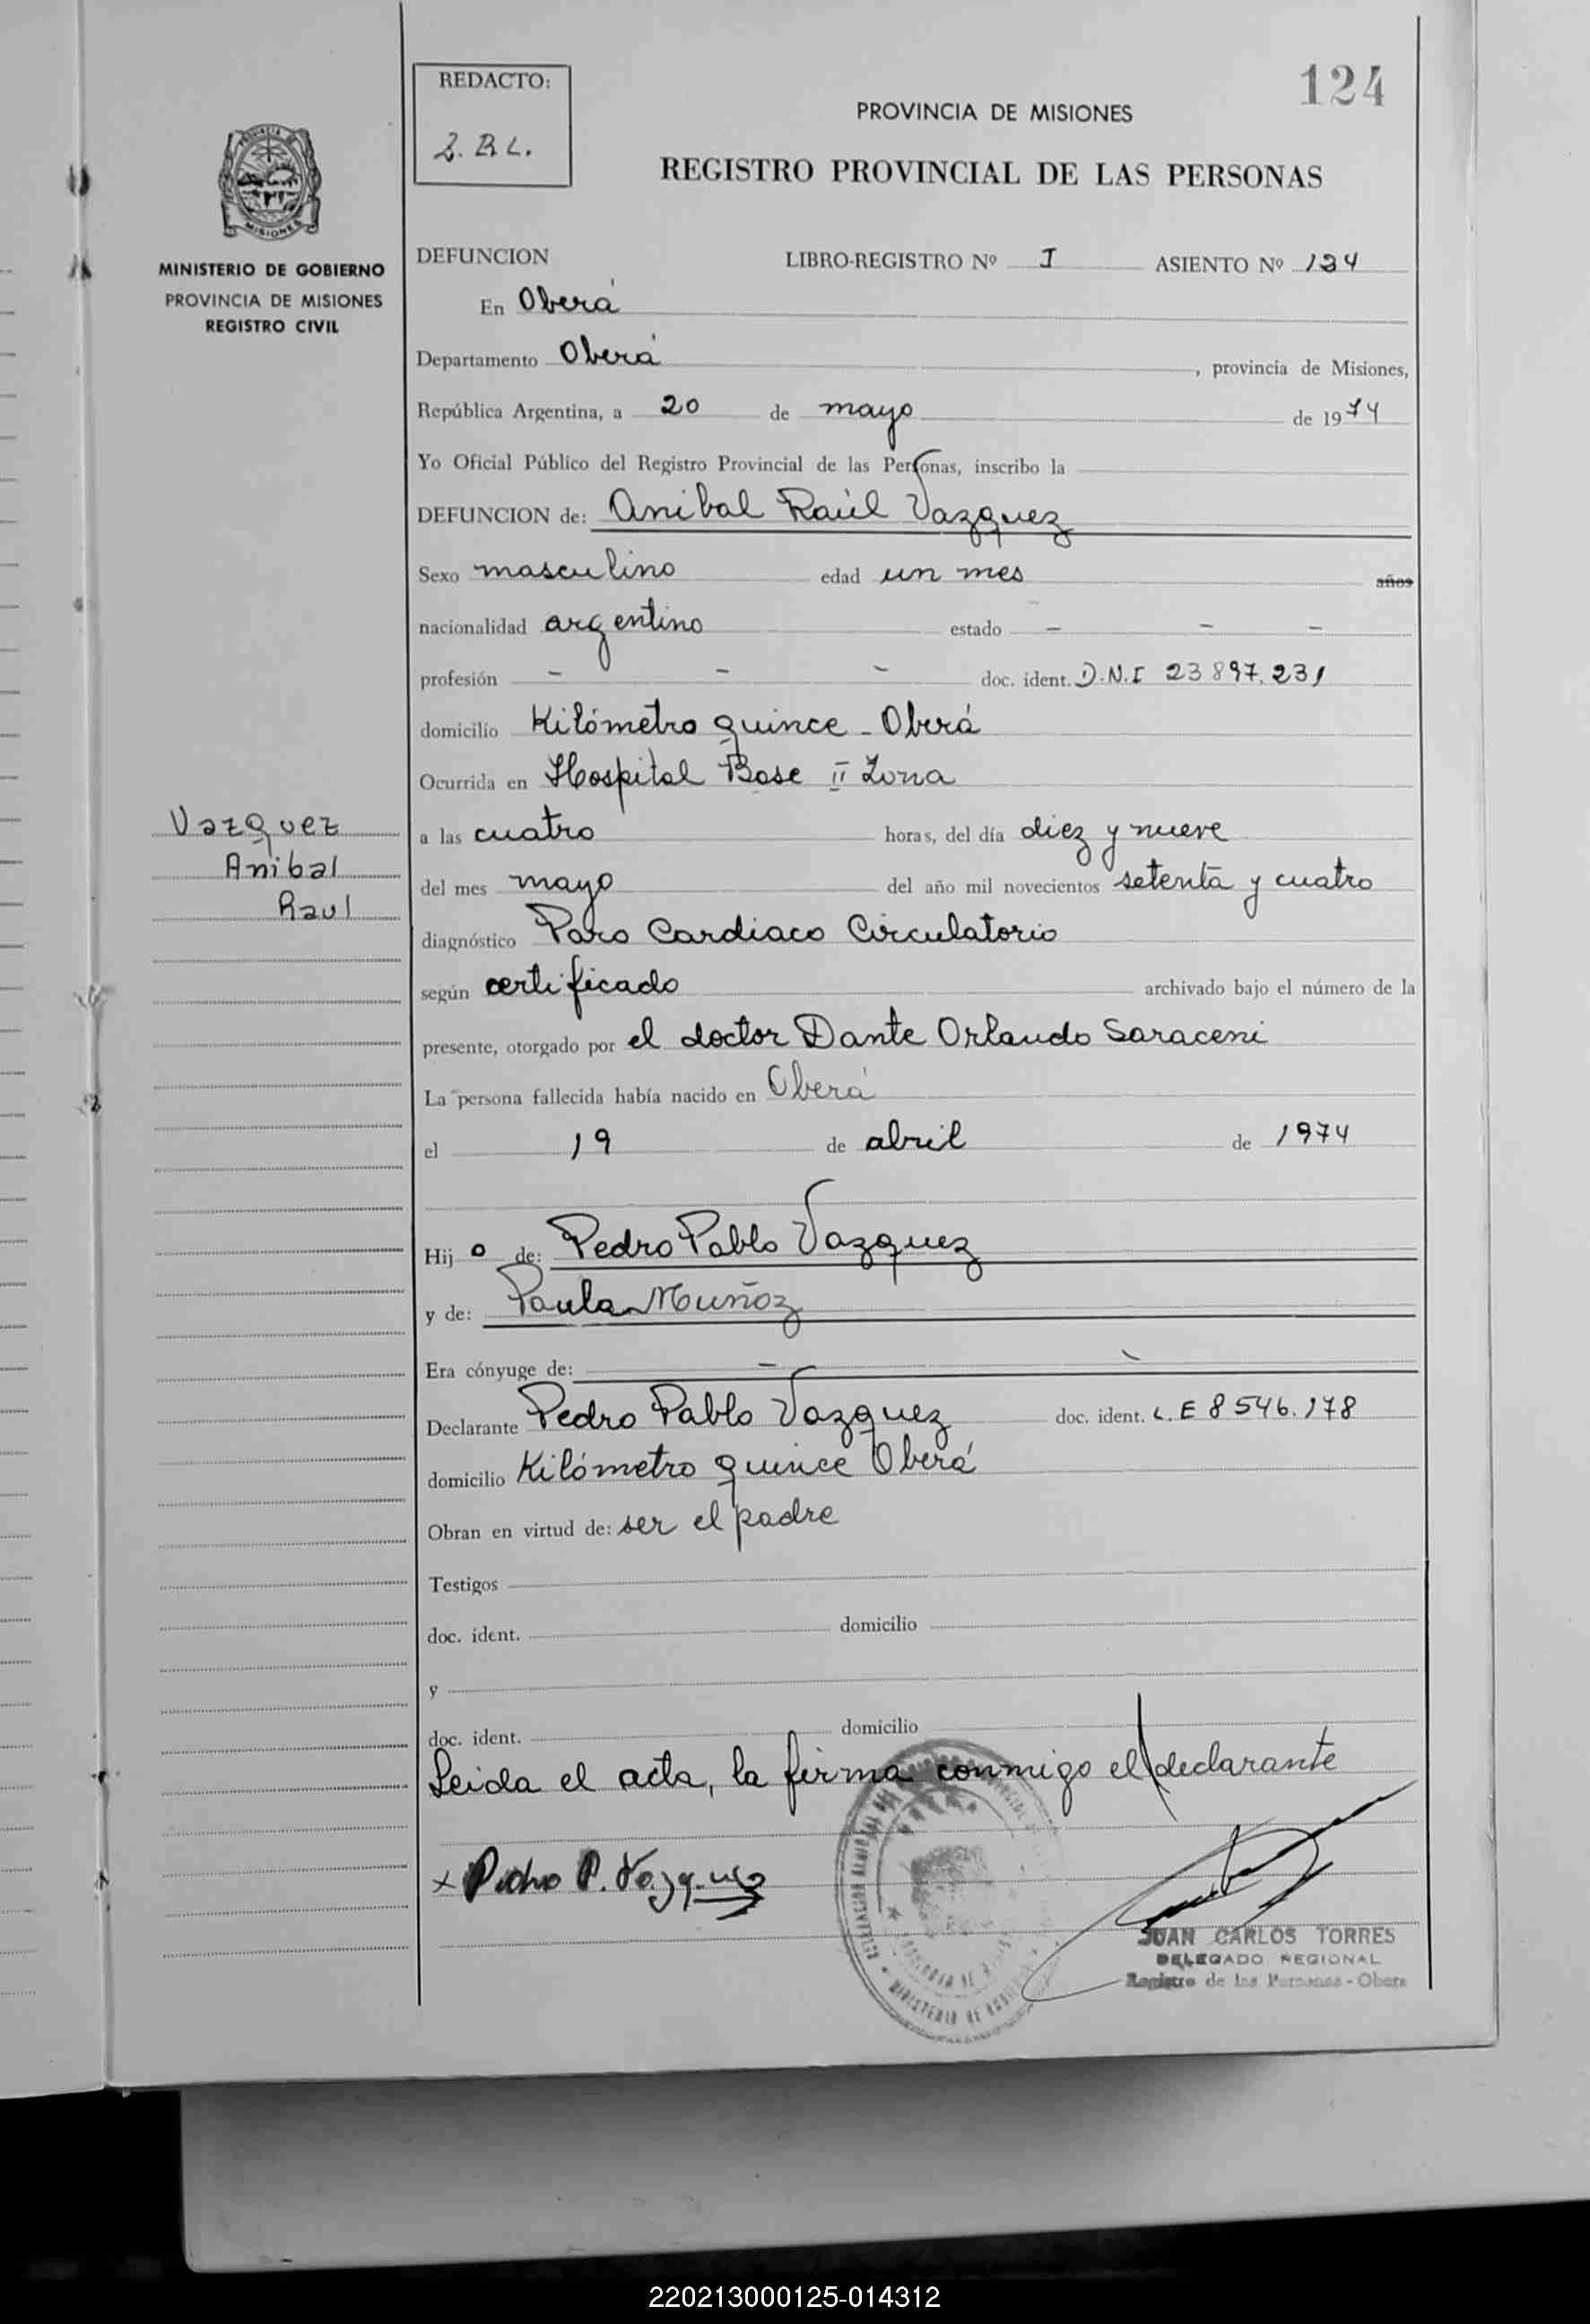 124
REDACTO:
PROVINCIA DE MISIONES
REGISTRO PROVINCIAL DE LAS PERSONAS
MISIONES
MINISTERIO DE GOBIERNO
PROVINCIA DE MISIONES
REGISTRO CIVIL
DEFUNCION LIBRO-REGISTRO Nº I ASIENTO Nº 134
En Oberá
Departamento Oberá, provincia de Misiones,
República Argentina, a 20 de mayo de 1974
Yo Oficial Público del Registro Provincial de las Personas, inscribo la
DEFUNCION de: Anibal Raúl Vazquez
Sexo masculino edad un mes años
nacionalidad argentino estado - - -
profesión - - - doc. ident. D.N.I 23 897.231
domicilio Kilómetro quince - Oberá
Ocurrida en Hospital Base II Zona
Vazquez
Anibal
Raul
a las cuatro horas, del día diez y nueve
del mes mayo del año mil novecientos setenta y cuatro
diagnóstico Paro Cardiaco Circulatorio
según certificado archivado bajo el número de la
presente, otorgado por el doctor Dante Orlando Saraceni
La persona fallecida había nacido en Oberá
el 19 de abril de 1974
Hijo de: Pedro Pablo Vazquez
y de: Paula Muñoz
Era cónyuge de: - -
Declarante Pedro Pablo Vazquez doc. ident. L.E 8546.178
domicilio Kilómetro quince Oberá
Obran en virtud de: ser el padre
Testigos
doc. ident. domicilio
y
doc. ident. domicilio
Leida el acta, la firma conmigo el declarante
x Pedro P. Vazquez
JUAN CARLOS TORRES
DELEGADO REGIONAL
Registro de las Personas - Obera
220213000125-014312